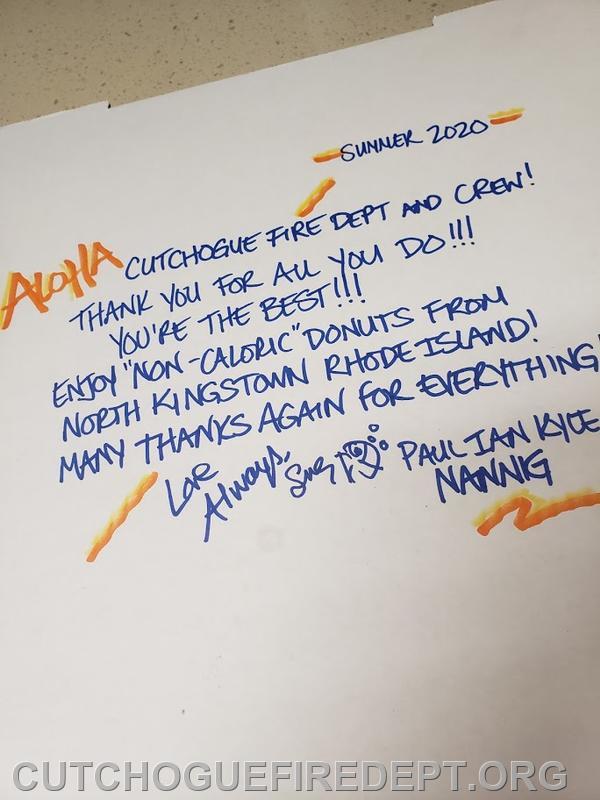 SUMMER 2020
ALOHA CUTCHOGUE FIRE DEPT AND CREW!
THANK YOU FOR ALL YOU DO!!!
YOU'RE THE BEST!!!
ENJOY "NON-CALORIC" DONUTS FROM
NORTH KINGSTOWN RHODE ISLAND!
MANY THANKS AGAIN FOR EVERYTHING!
LOVE
Always, PAUL IAN KYLE
NANNIG
CUTCHOGUEFIREDEPT.ORG